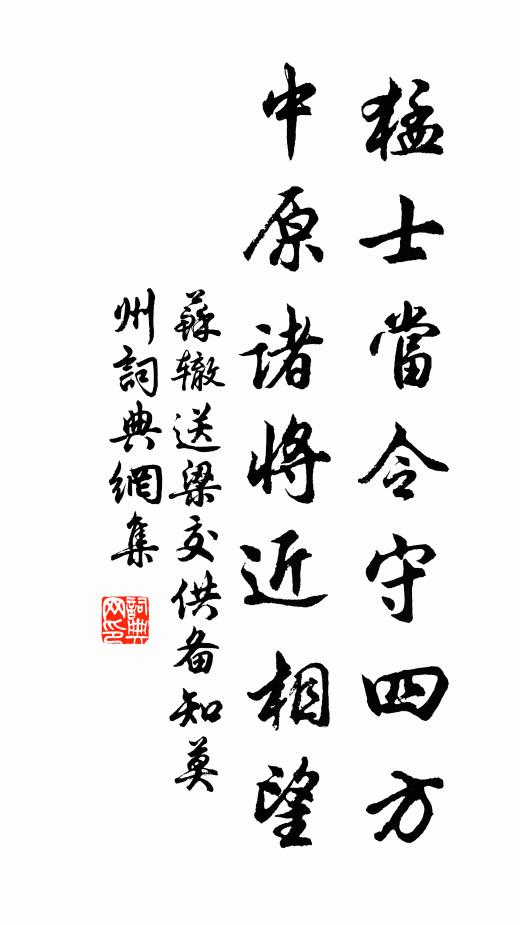 猛士當令守四方
中原諸將近相望
蘇轍送梁交供备知莫
州詞典網集
詞典
网印